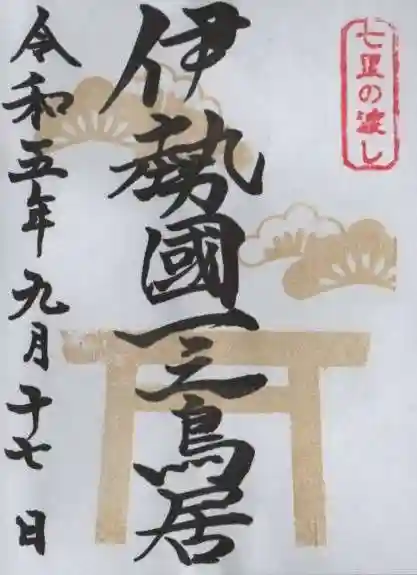 七里の渡し
伊勢國一之鳥居
令和五年九月十七日